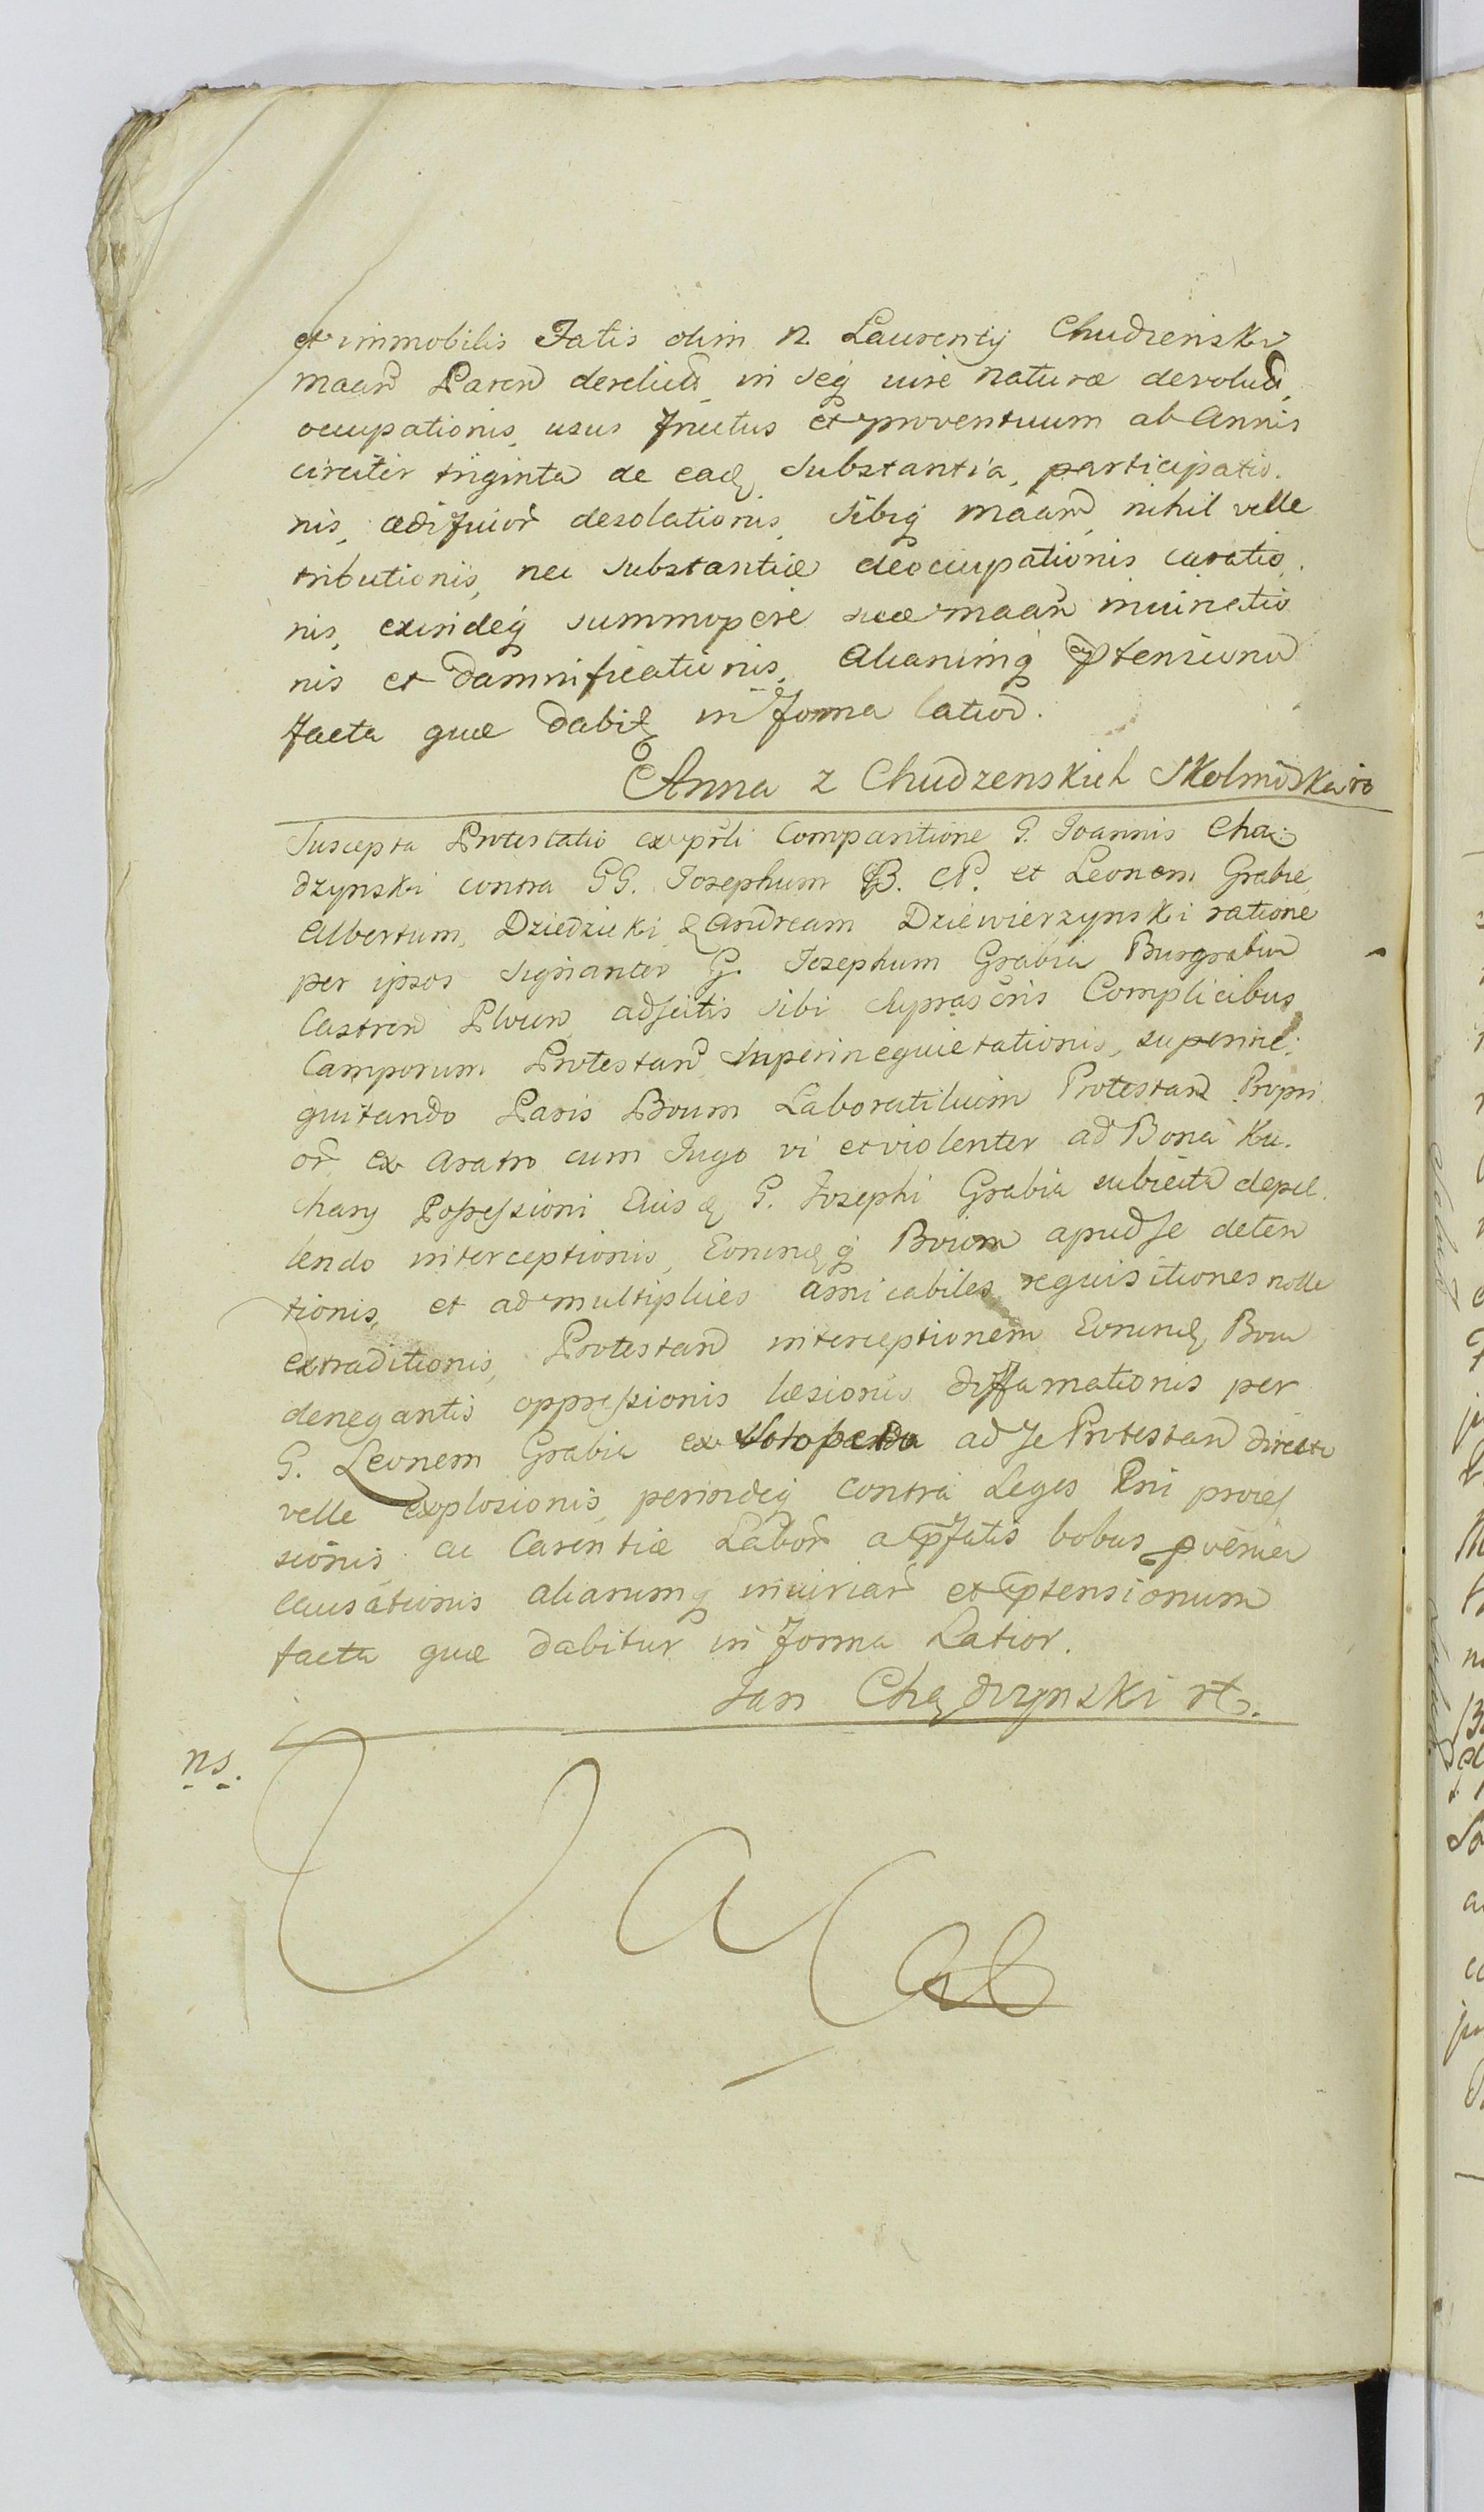 et immobilis Fatis olim N. Laurentij Chudzenski
maan Paren derelict in seq iure naturæ devolut,
occupationis, usus fructus et proventuum ab Annis
circiter triginta de eadę substantia, participatio.
nis, ædificior desolationis, sibiq maan nihil velle
tributionis, nec substantiæ deoccupationis curatio.
nis, exindeq summopere suæ maan iniuriatio
nis et damnificationis, Aliarumq ptensionu
facta quæ dabitę in forma latior.
Anna z Chudzenskich Skolmoska
Suscepta Protestatio ex prli Comparitione G. Joannis Cha:
dzynski contra GG. Josephum B. P. et Leonem Grabie
Albertum, Dziedzicki & Andream Dziewierzynski ratione
per ipsos signanter G. Josephum Grabia Burgrabiu
Castren Plocen adscitis sibi suprascris Complicibus
Camporum Protestan superinequietationis, superine:
quitando Paris Boum Laboratilium Protestan Propri.
or ex Aratro cum Jugo vi et violenter ad Bona Ku.
chary Possessioni Eiusdę G. Josephi Grabia subiecta depel.
lendo interceptionis, Eorundęq Boum apud se deten
tionis, et ad multiplices amicabiles requisitiones nolle
extraditionis, Protestan interceptionem Eorundę Bou
denegantis oppressionis læsionis diffamationis per
G. Leonem Grabia ex ad se Protestan directe
velle explosionis, perindeq contra Leges Rni proces
sionis ac Carentiæ Labor a pfatis bobus pvenien
causationis aliarumq iniuriar et ptensionum
facta quæ dabitur in forma Latior.
Jan Chądzynski
ns.
Vacat